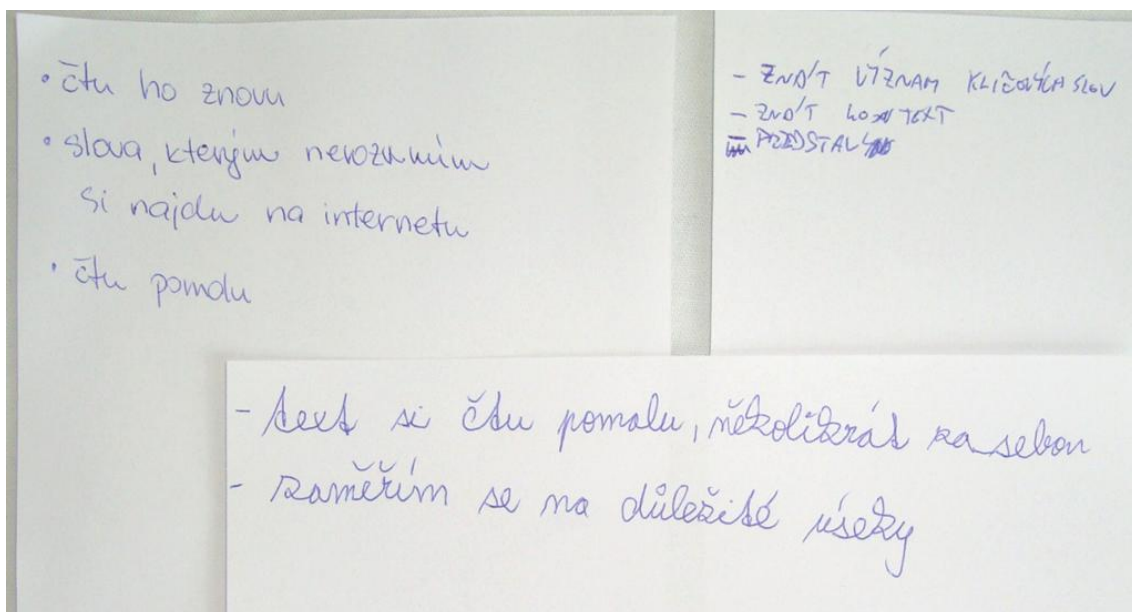 • čtu ho znovu
• slova, kterým nerozumím
si najdu na internetu
• čtu pomalu
- ZNÁT VÝZNAM KLÍČOVÝCH SLOV
- ZNÁT KONTEXT
- text si čtu pomalu, několikrát za sebou
- zaměřím se na důležité úseky